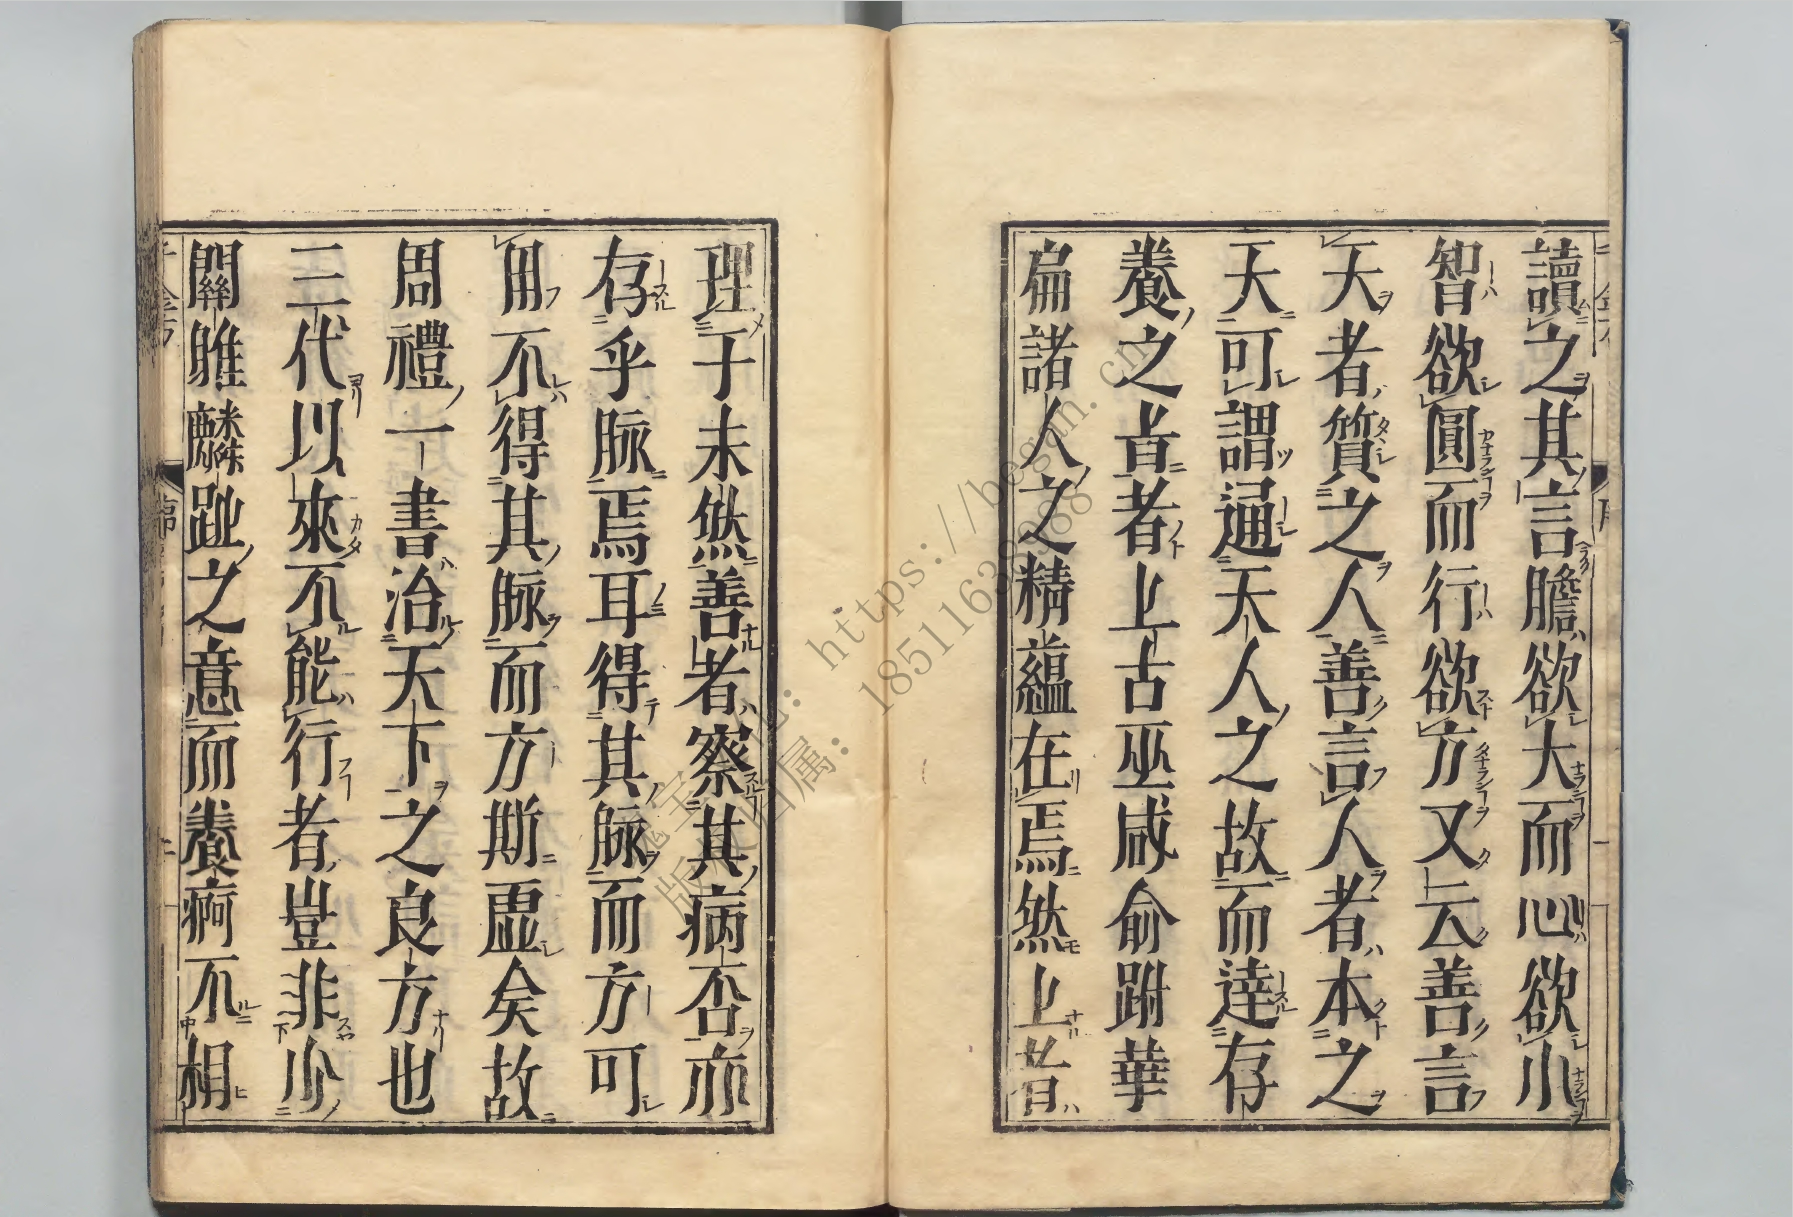 讀之其言膽欲大而心欲小
智欲圓而行欲方又云善言
天者質之人善言人者本之
天可謂通天人之故而達存
養之旨者上古巫咸俞跗華
扁諸人之精蘊在焉然上者
理于未然善者察其病否亦
存乎脉焉耳得其脉而方可
用不得其脉而方斯虛矣故
周禮一書治天下之良方也
三代以來不能行者豈非少
關雎麟趾之意而養痾不相
https://began.cn
18511638988